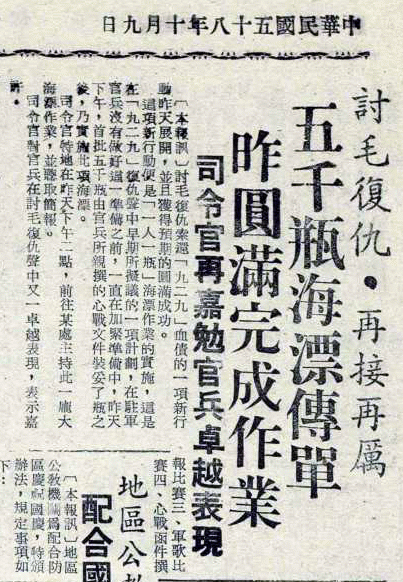 中華民國五十八年十月九日
討毛復仇·再接再厲
五千瓶海漂傳單
昨圓滿完成作業
司令官再嘉勉官兵卓越表現
〔本報訊〕討毛復仇索還「九二九」血債的一項新行
動昨天展開,並且獲得預期的圓滿成功。
這項新行動便是「一人一瓶」海漂作業的實施,這是
在「九二九」復仇聲中早期所擬議的一項計劃,在駐軍
官兵沒有做好這一準備之前,一直在加緊準備中,昨天
下午,首批五千瓶由官兵所親撰的心戰文件裝妥了瓶之
後,乃實施此項海漂。
司令官特地在昨天下午二點,前往某處主持此一龐大
海漂作業,並聽取簡報。
司令官對官兵在討毛復仇聲中又一卓越表現,表示嘉
許。
報比賽三、軍歌比
賽四、心戰函件撰
地區公
配合國
〔本報訊〕地區
公教機關為配合防
區慶祝國慶,特頒
辦法,規定事項如
下: